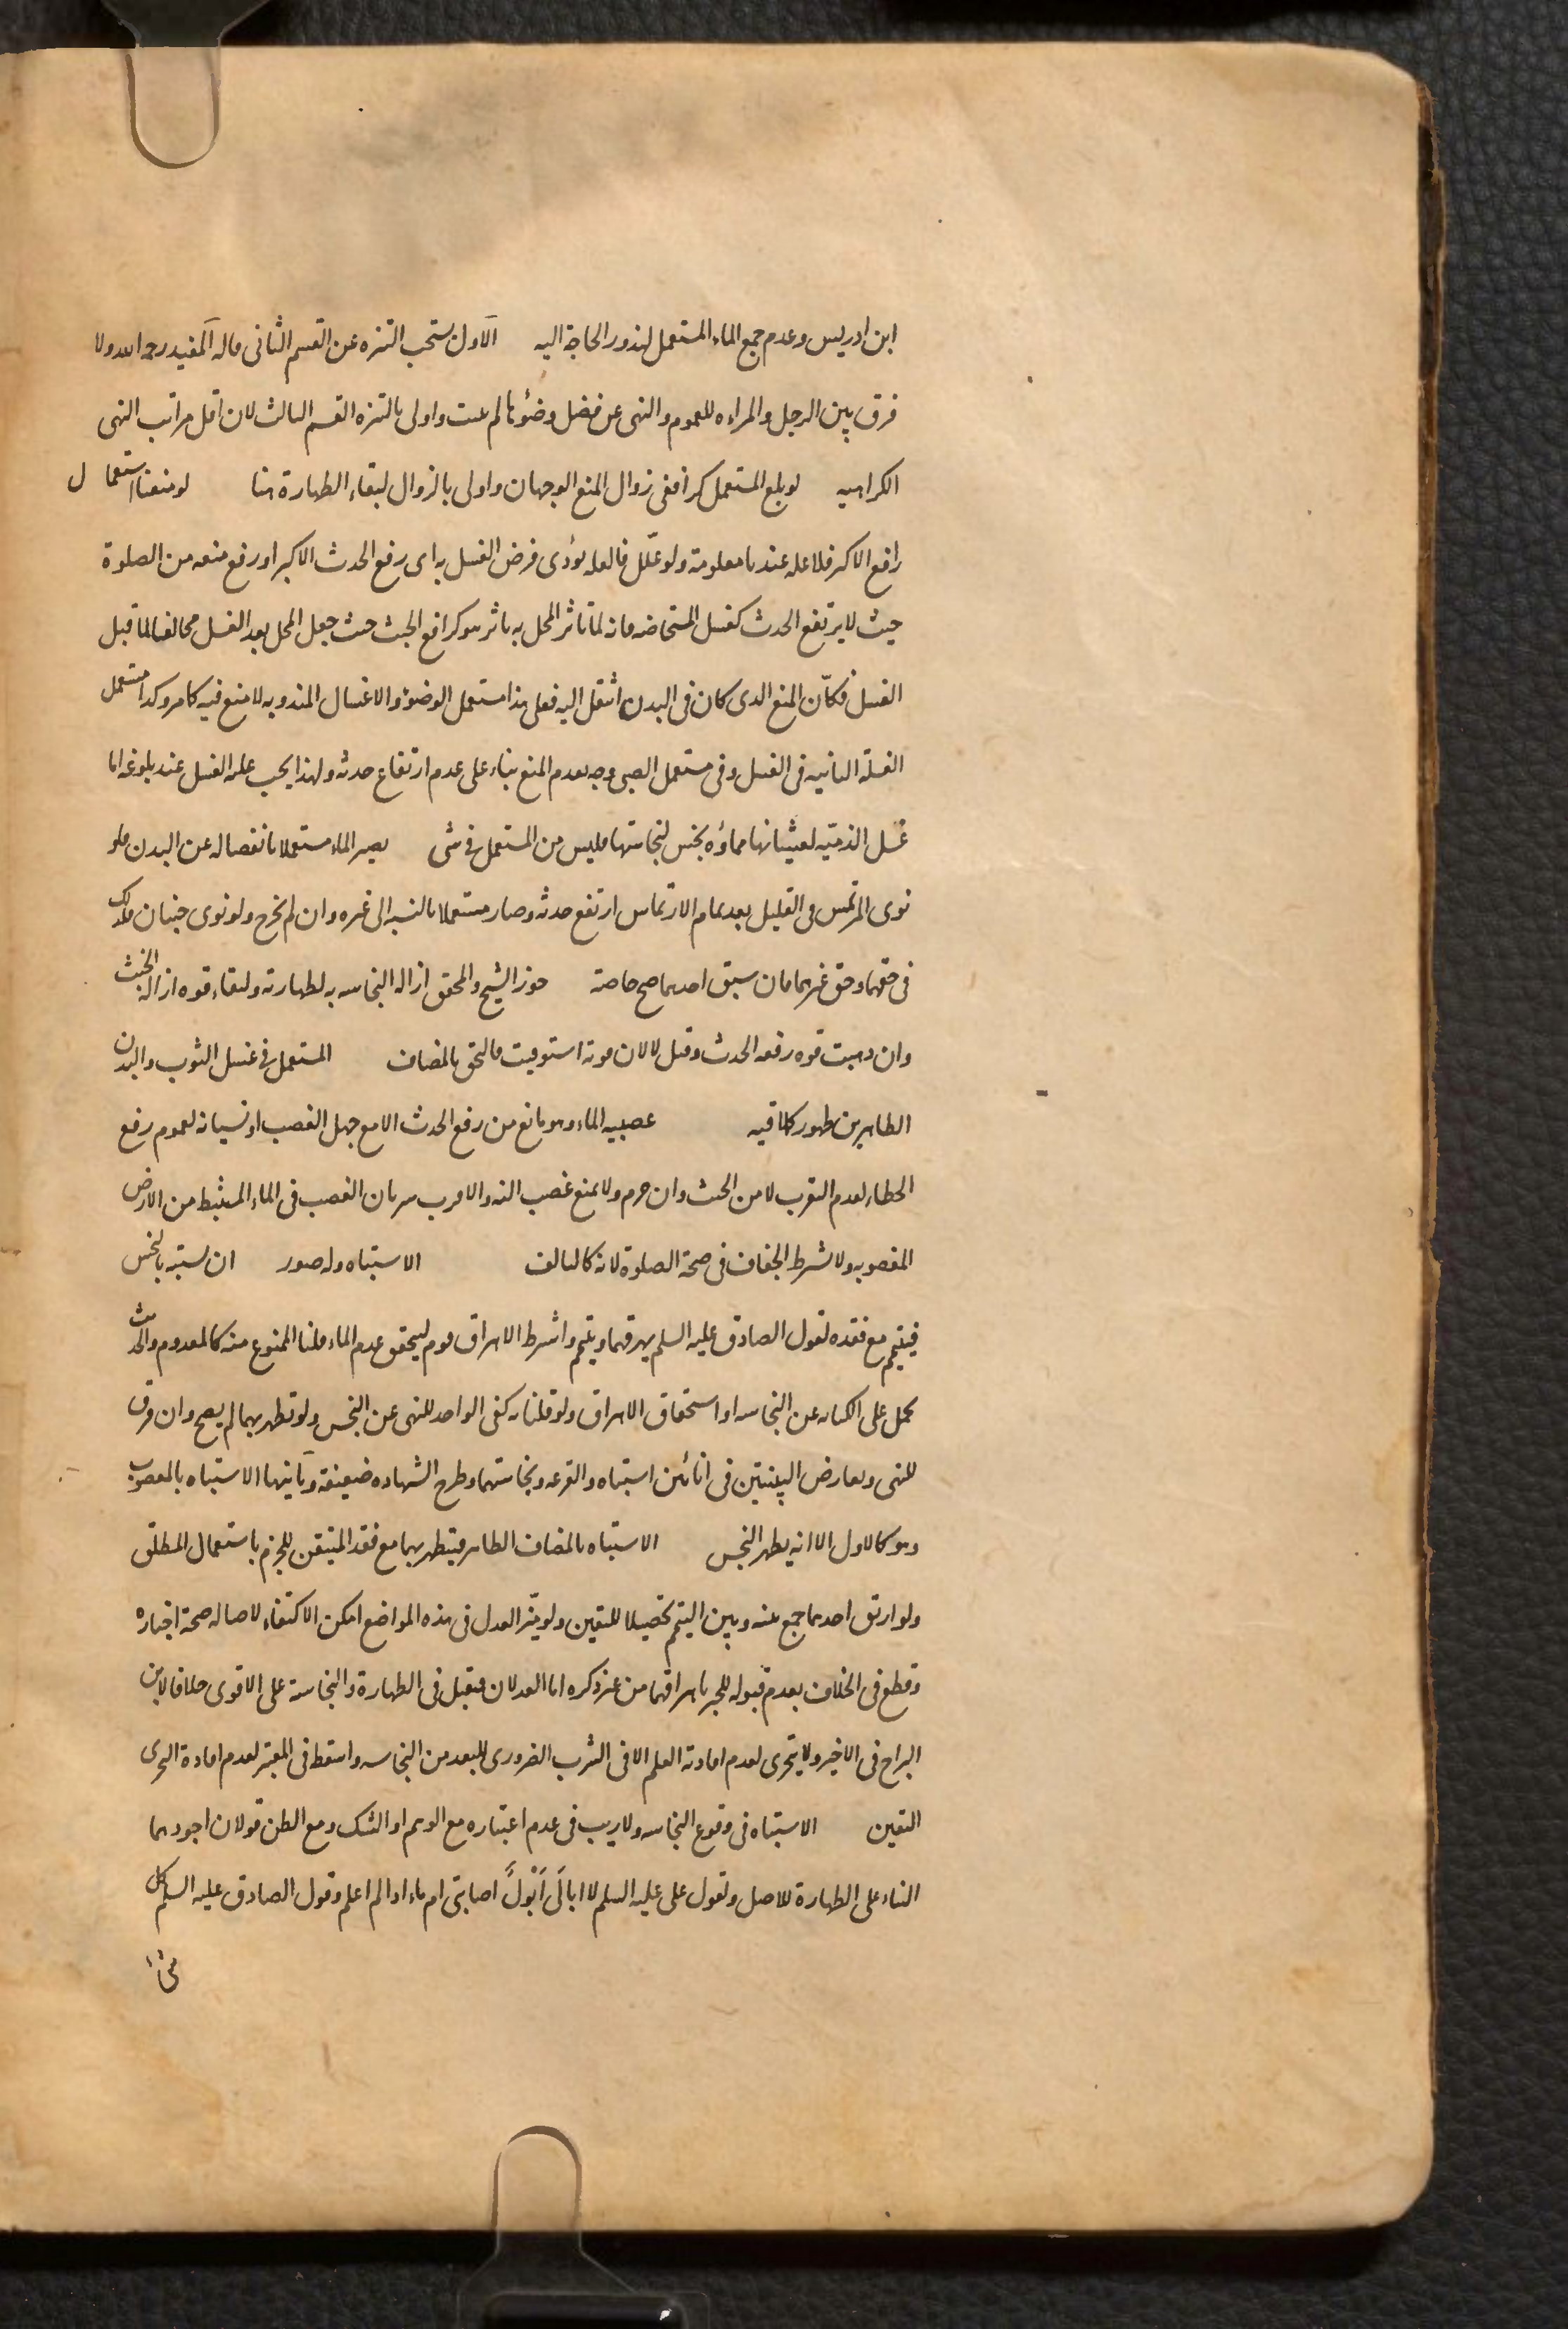 ابن ادريس وعدم جمع الماء المستعمل لندور الحاجة اليه الاول يستحب التنزه عن القسم الثانى قاله المفيد رحمه الله ولا
فرق بين الرجل والمراءه للعموم والنهى عن فضل وضوئها لم يثبت واولى بالتنزه القسم الثالث لان اقل مراتب النهى
الكراهيه لو بلغ المستعمل كرا ففى زوال المنع الوجهان واولى بالزوال لبقاء الطهارة هنا لو منعنا استعمال
رافع الاكبر فلا عله عندنا معلومة ولو علل فالعله تؤدى فرض الغسل به اى رفع الحدث الاكبر او رفع منعه من الصلوة
حيث لا يرتفع الحدث كغسل المستحاضه فانه لما تاثر المحل به تاثر هو كرافع الخبث حيث جعل المحل بعد الغسل مخالفا لما قبل
الغسل فكأن المنع الدى كان فى البدن انتقل اليه فعلى هذا مستعمل الوضوء والاغسال المندوبه لا منع فيه كما مر وكدا مستعمل
الغسلة الثانيه فى الغسل وفى مستعمل الصبى وجه بعدم المنع بناء على عدم ارتفاع حدثه ولهذا يجب عليه الغسل عند بلوغه اما
غسل الذميه لغشيانها فماؤه نجس لنجاستها فليس من المستعمل فى شى يصير الماء مستعملا بانفصاله عن البدن فلو
نوى المرتمس فى القليل بعد تمام الارتماس ارتفع حدثه وصار مستعملا بالنسبه الى غيره وان لم يخرج ولو نوى جنبان فكدلك
فى حقهما وحق غيرهما فان سبق احدهما صح خاصة جوز الشيخ والمحقق ازاله النجاسه به لطهارته ولبقاء قوه ازاله الخبث
وان دهبت قوه رفعه الحدث وقيل لا لان قوته استوفيت فالتحق بالمضاف المستعمل فى غسل الثوب والبدن
الطاهرين طهور كملاقيه عصبيه الماء وهو مانع من رفع الحدث الا مع جهل الغصب او نسيانه لعموم رفع
الخطاء لعدم التقرب لا من الخبث وان حرم ولا يمنع غصب النه والاقرب سريان الغصب فى الماء المستنبط من الارض
المغصوبه ولا يشترط الجفاف فى صحة الصلوة لانه كالتالف الاشتباه وله صور ان يشتبه بالنجس
فيتيمم مع فقده لقول الصادق عليه السلم يهرقهما ويتيمم واشترط الاهراق قوم ليتحقق عدم الماء قلنا الممنوع منه كالمعدوم والحديث
يحمل على الكنايه عن النجاسه او استحقاق الاهراق ولو قلنا به كفى الواحد للنهى عن النجس ولو تطهر بهما لم يصح وان فرق
للنهى وتعارض البينتين فى انائين اشتباه والقرعه ونجاستهما وطرح الشهاده ضعيفة وثانيها الاشتباه بالمغصوب
وهو كالاول الا انه يطهر النجس الاشتباه بالمضاف الطاهر فيتطهر بهما مع فقد المتيقن للجزم باستعمال المطلق
ولو اريق احدهما جمع بينه وبين التيمم تحصيلا لليقين ولو ميز العدل فى هذه المواضع امكن الاكتفاء لاصاله صحة اخباره
وقطع فى الخلاف بعدم قبوله للخبر باهراقهما من غير ذكره اما العدلان فيقبل فى الطهارة والنجاسة على الاقوى خلافا لابن
البراج فى الاخير ولا يتحرى لعدم افادته العلم الا فى الشرب الضرورى للبعد من النجاسه واسقط فى المعتبر لعدم افادة التحرى
اليقين الاشتباه فى وقوع النجاسه ولا ريب فى عدم اعتباره مع الوهم او الشك ومع الظن قولان اجودهما
البناء على الطهارة للاصل ولقول على عليه السلم لا ابالى ابول اصابنى ام ماء ادا لم اعلم وقول الصادق عليه السلم كل